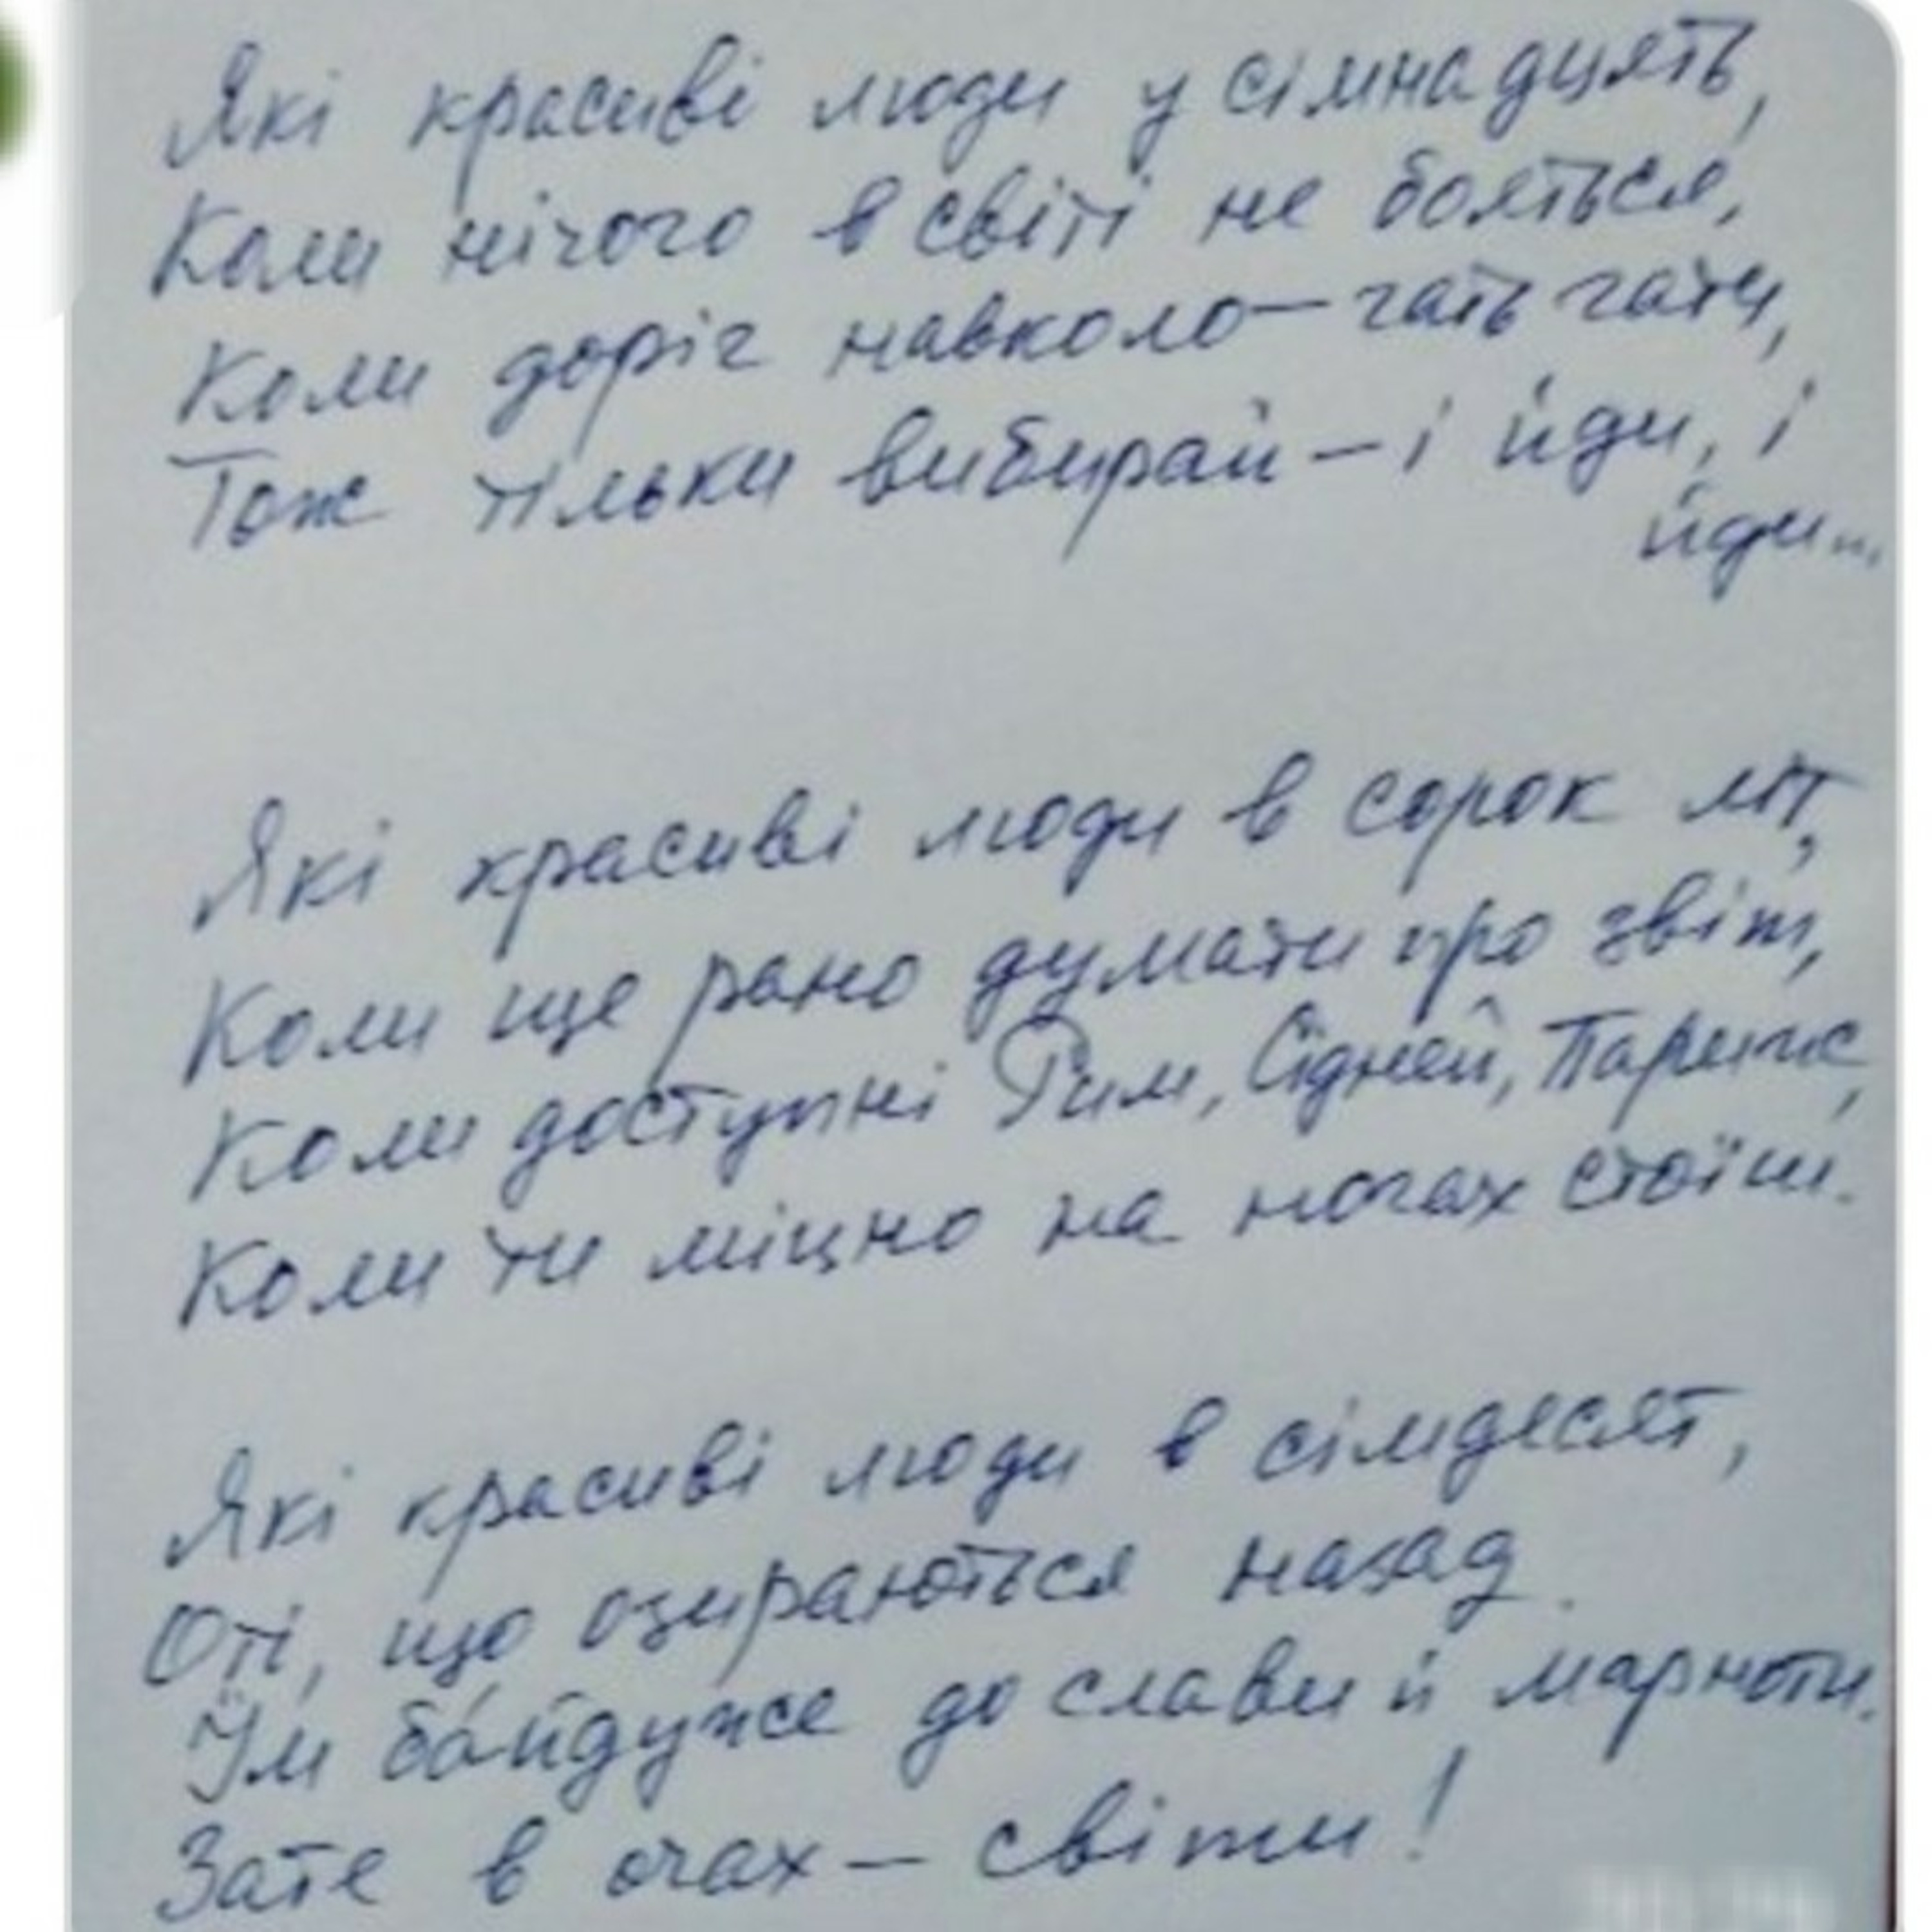 Які красиві люди у сімнадцять,
Коли нічого в світі не бояться,
Коли доріг навколо – гать гати,
Тож тільки вибирай – і йди, і
йди...
Які красиві люди в сорок літ,
Коли ще рано думати про звіт,
Коли доступні Рим, Сідней, Париж,
Коли ти міцно на ногах стоїш.
Які красиві люди в сімдесят,
Оті, що озираються назад.
Їм байдуже до слави й марноти.
Зате в очах – світи!